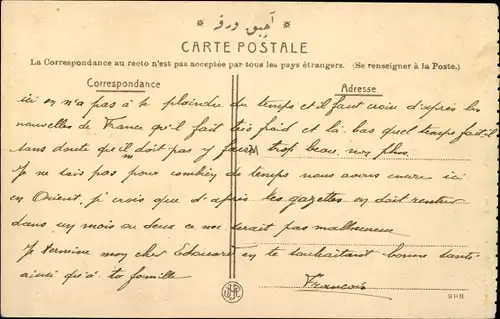 آچيق ورقه
CARTE POSTALE
La Correspondance au recto n'est pas acceptée par tous les pays étrangers. (Se renseigner à la Poste.)
Correspondance
Adresse
ici on n'a pas à se plaindre du temps et il faut croire d'après les
nouvelles de France qu'il fait très froid et là-bas quel temps fait-il
sans doute qu'il doit pas y faire trop beau non plus.
Je ne sais pas pour combien de temps nous avons encore ici
en Orient, je crois que d'après les gazettes on doit rentrer
dans un mois ou deux ce ne serait pas malheureux
Je termine mon cher Edouard en te souhaitant bonne santé
ainsi qu'à ta famille
François
BPR